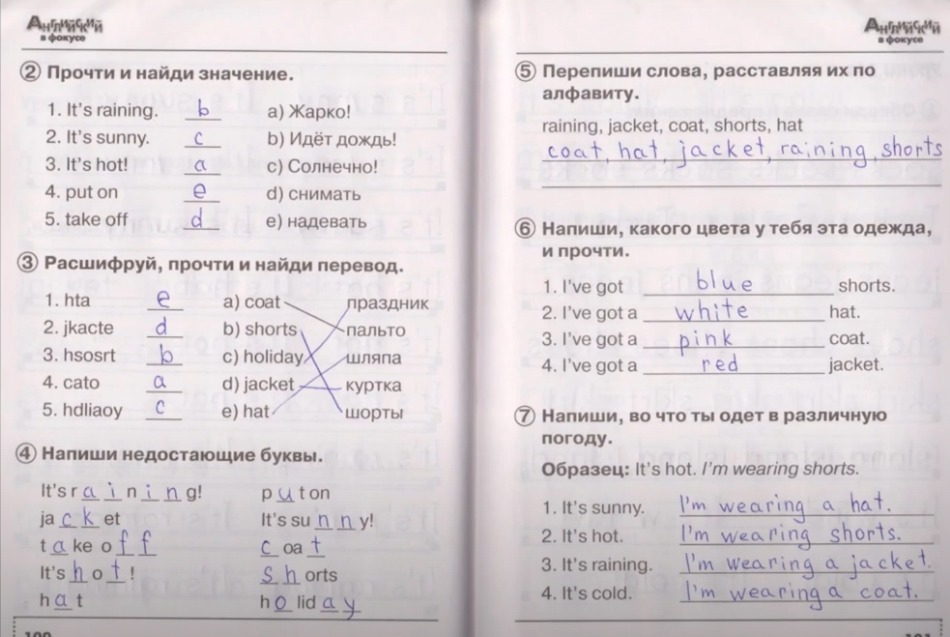 Английский
в фокусе
② Прочти и найди значение.
1. It's raining. b a) Жарко!
2. It's sunny. c b) Идёт дождь!
3. It's hot! a c) Солнечно!
4. put on e d) снимать
5. take off d e) надевать
③ Расшифруй, прочти и найди перевод.
1. hta e a) coat праздник
2. jkacte d b) shorts пальто
3. hsosrt b c) holiday шляпа
4. cato a d) jacket куртка
5. hdliaoy c e) hat шорты
④ Напиши недостающие буквы.
It's r a i n i n g! p u t on
ja c k et It's su n n y!
t a ke o f f c oa t
It's h o t ! s h orts
h a t h o lid a y
Английский
в фокусе
⑤ Перепиши слова, расставляя их по
алфавиту.
raining, jacket, coat, shorts, hat
coat, hat, jacket, raining, shorts
⑥ Напиши, какого цвета у тебя эта одежда,
и прочти.
1. I've got blue shorts.
2. I've got a white hat.
3. I've got a pink coat.
4. I've got a red jacket.
⑦ Напиши, во что ты одет в различную
погоду.
Образец: It's hot. I'm wearing shorts.
1. It's sunny. I'm wearing a hat.
2. It's hot. I'm wearing shorts.
3. It's raining. I'm wearing a jacket.
4. It's cold. I'm wearing a coat.